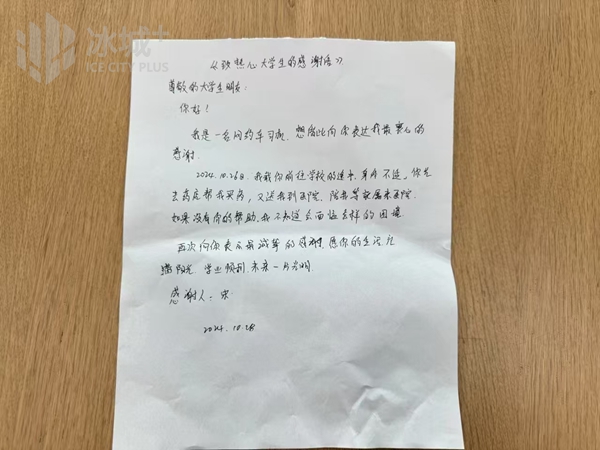 冰城+
ICE CITY PLUS
《致热心大学生的感谢信》
尊敬的大学生朋友：
你好！
我是一名网约车司机，想借此向你表达我最衷心的
感谢.
2024.10.26日，我载你前往学校的途中，身体不适，你先
去药店帮我买药，又送我到医院，陪我等家属来医院.
如果没有你的帮助，我不知道会面临怎样的困境
再次向你表示最诚挚的感谢.愿你的生活充
满阳光，学业顺利，未来一片光明.
感谢人：宋
2024.10.28